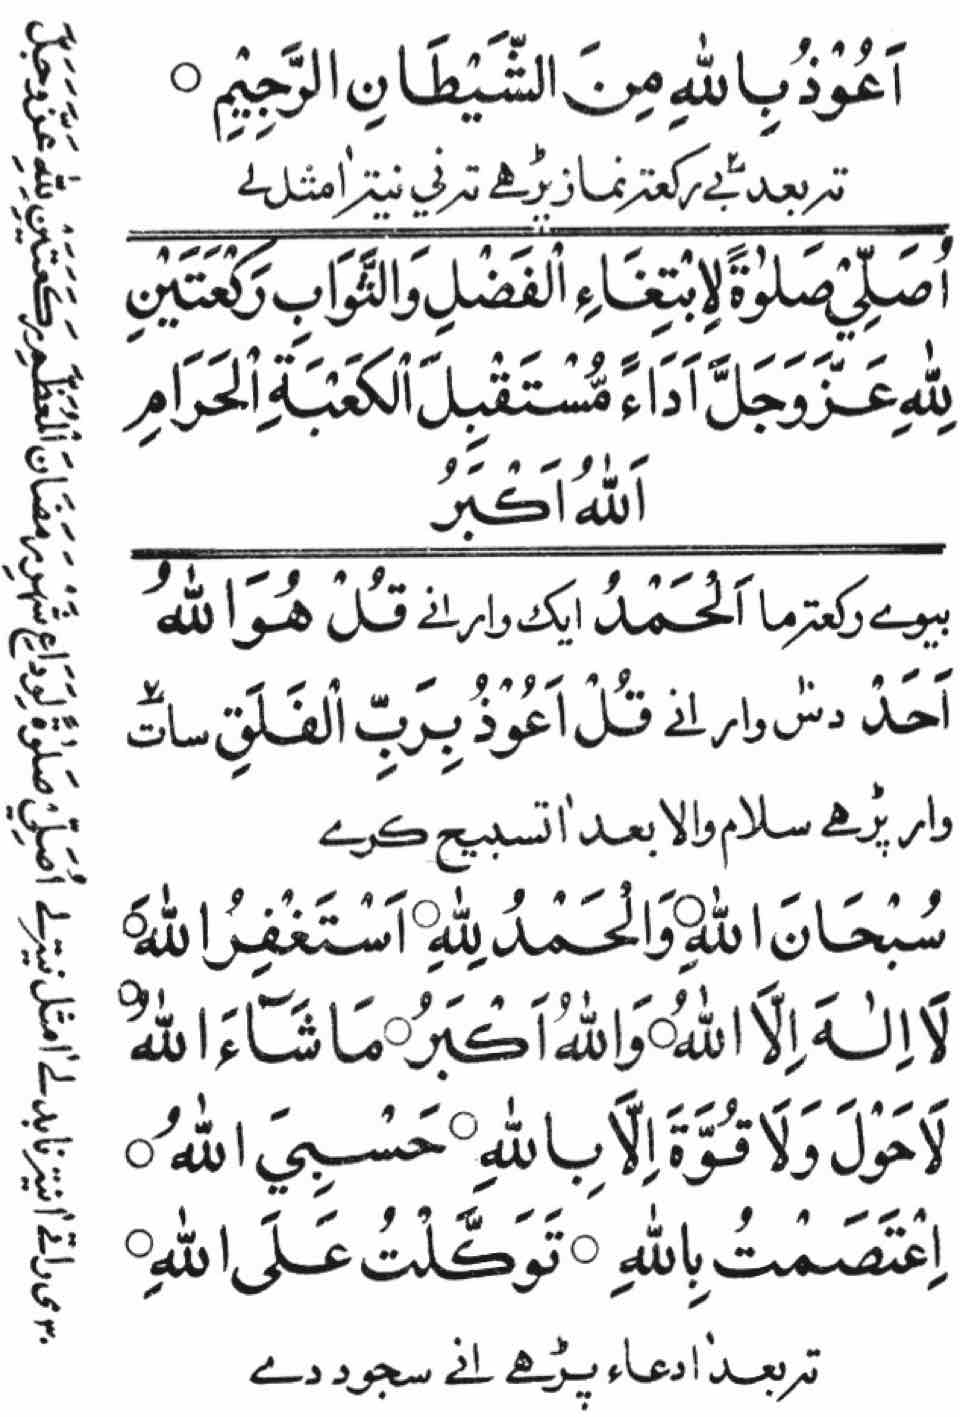 اَعُوْذُ بِاللهِ مِنَ الشَّيْطَانِ الرَّجِيْمِ ○
تہ بعد ٢ بے رکعتہ نماز پڑھے تہ ني نیتہ اٰمثل لے
اُصَلِّيْ صَلٰوةً لِاِبْتِغَاءِ الْفَضْلِ وَالثَّوَابِ رَكْعَتَيْنِ
لِلّٰهِ عَزَّ وَجَلَّ اَدَاءً مُّسْتَقْبِلَ الْكَعْبَةِ الْحَرَامِ
اَللهُ اَكْبَرُ
بیوے رکعتہ ما اَلْحَمْدُ ایك وار انے قُلْ هُوَ اللهُ
اَحَدْ دس وار انے قُلْ اَعُوْذُ بِرَبِّ الْفَلَقِ سات ٧
وار پڑھے سلام والا بعد اٰ تسبیح کرے
سُبْحَانَ اللهِ ○ وَالْحَمْدُ لِلّٰهِ ○ اَسْتَغْفِرُ اللهَ ○
لَا اِلٰهَ اِلَّا اللهُ ○ وَاللهُ اَكْبَرُ ○ مَا شَآءَ اللهُ ○
لَا حَوْلَ وَلَا قُوَّةَ اِلَّا بِاللهِ ○ حَسْبِيَ اللهُ ○
اِعْتَصَمْتُ بِاللهِ ○ تَوَكَّلْتُ عَلَى اللهِ ○
تہ بعد اٰ دعاء پڑھے انے سجود دے
٣٠ می راتے اٰ نیتہ نا بدلے اٰمثل نیتہ لے اُصَلِّيْ صَلٰوةً لِوَدَاعِ شَهْرِ رَمَضَانَ الْمُعَظَّمِ رَكْعَتَيْنِ لِلّٰهِ عَزَّ وَجَلَّ